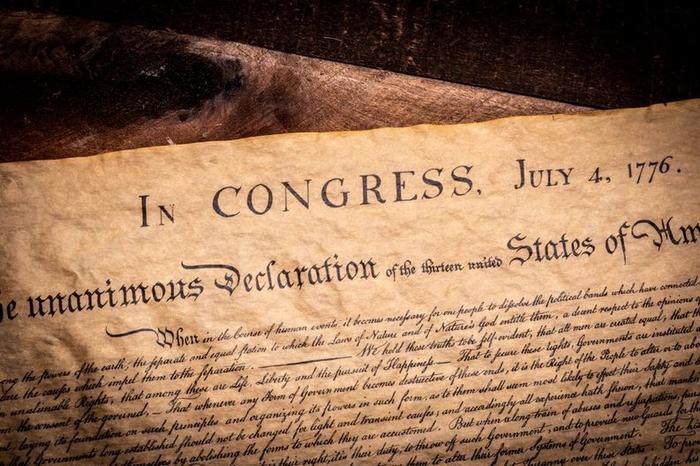 In CONGRESS, July 4, 1776.
he unanimous Declaration of the thirteen united States of Am
When in the Course of human events, it becomes necessary for one people to dissolve the political bands which have connected
ong the powers of the earth, the separate and equal station to which the Laws of Nature and of Nature's God entitle them, a decent respect to the opinions
are the causes which impel them to the separation. — We hold these truths to be self-evident, that all men are created equal, that th
n unalienable Rights, that among these are Life, Liberty and the pursuit of Happiness. — That to secure these rights, Governments are instituted
m the consent of the governed, — That whenever any Form of Government becomes destructive of these ends, it is the Right of the People to alter or to abo
laying its foundation on such principles, and organizing its powers in such form, as to them shall seem most likely to effect their Safety and
Governments long established should not be changed for light and transient causes; and accordingly all experience hath shewn, that man
by abolishing the forms to which they are accustomed. But when a long train of abuses and usurpations, pur
is their right, it is their duty, to throw off such Government, and to provide new Guards for
to alter their former Systems of Government. The his
Tyranny over these States. To pr